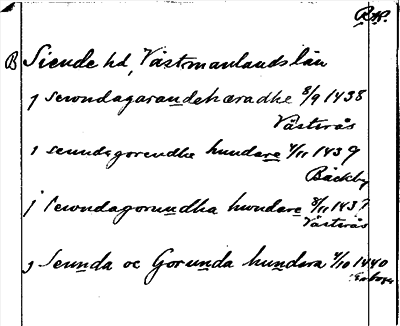 B Siende hd, Västmanlands län
j sewndagarandehæradhe 8/9 1438
Västerås
j seundagorendhe hundare 4/11 1439
Bäckby
j sewndagorundha hwndare 8/11 1437
Västerås
j Seunda oc Gorunda hundara 4/10 1440